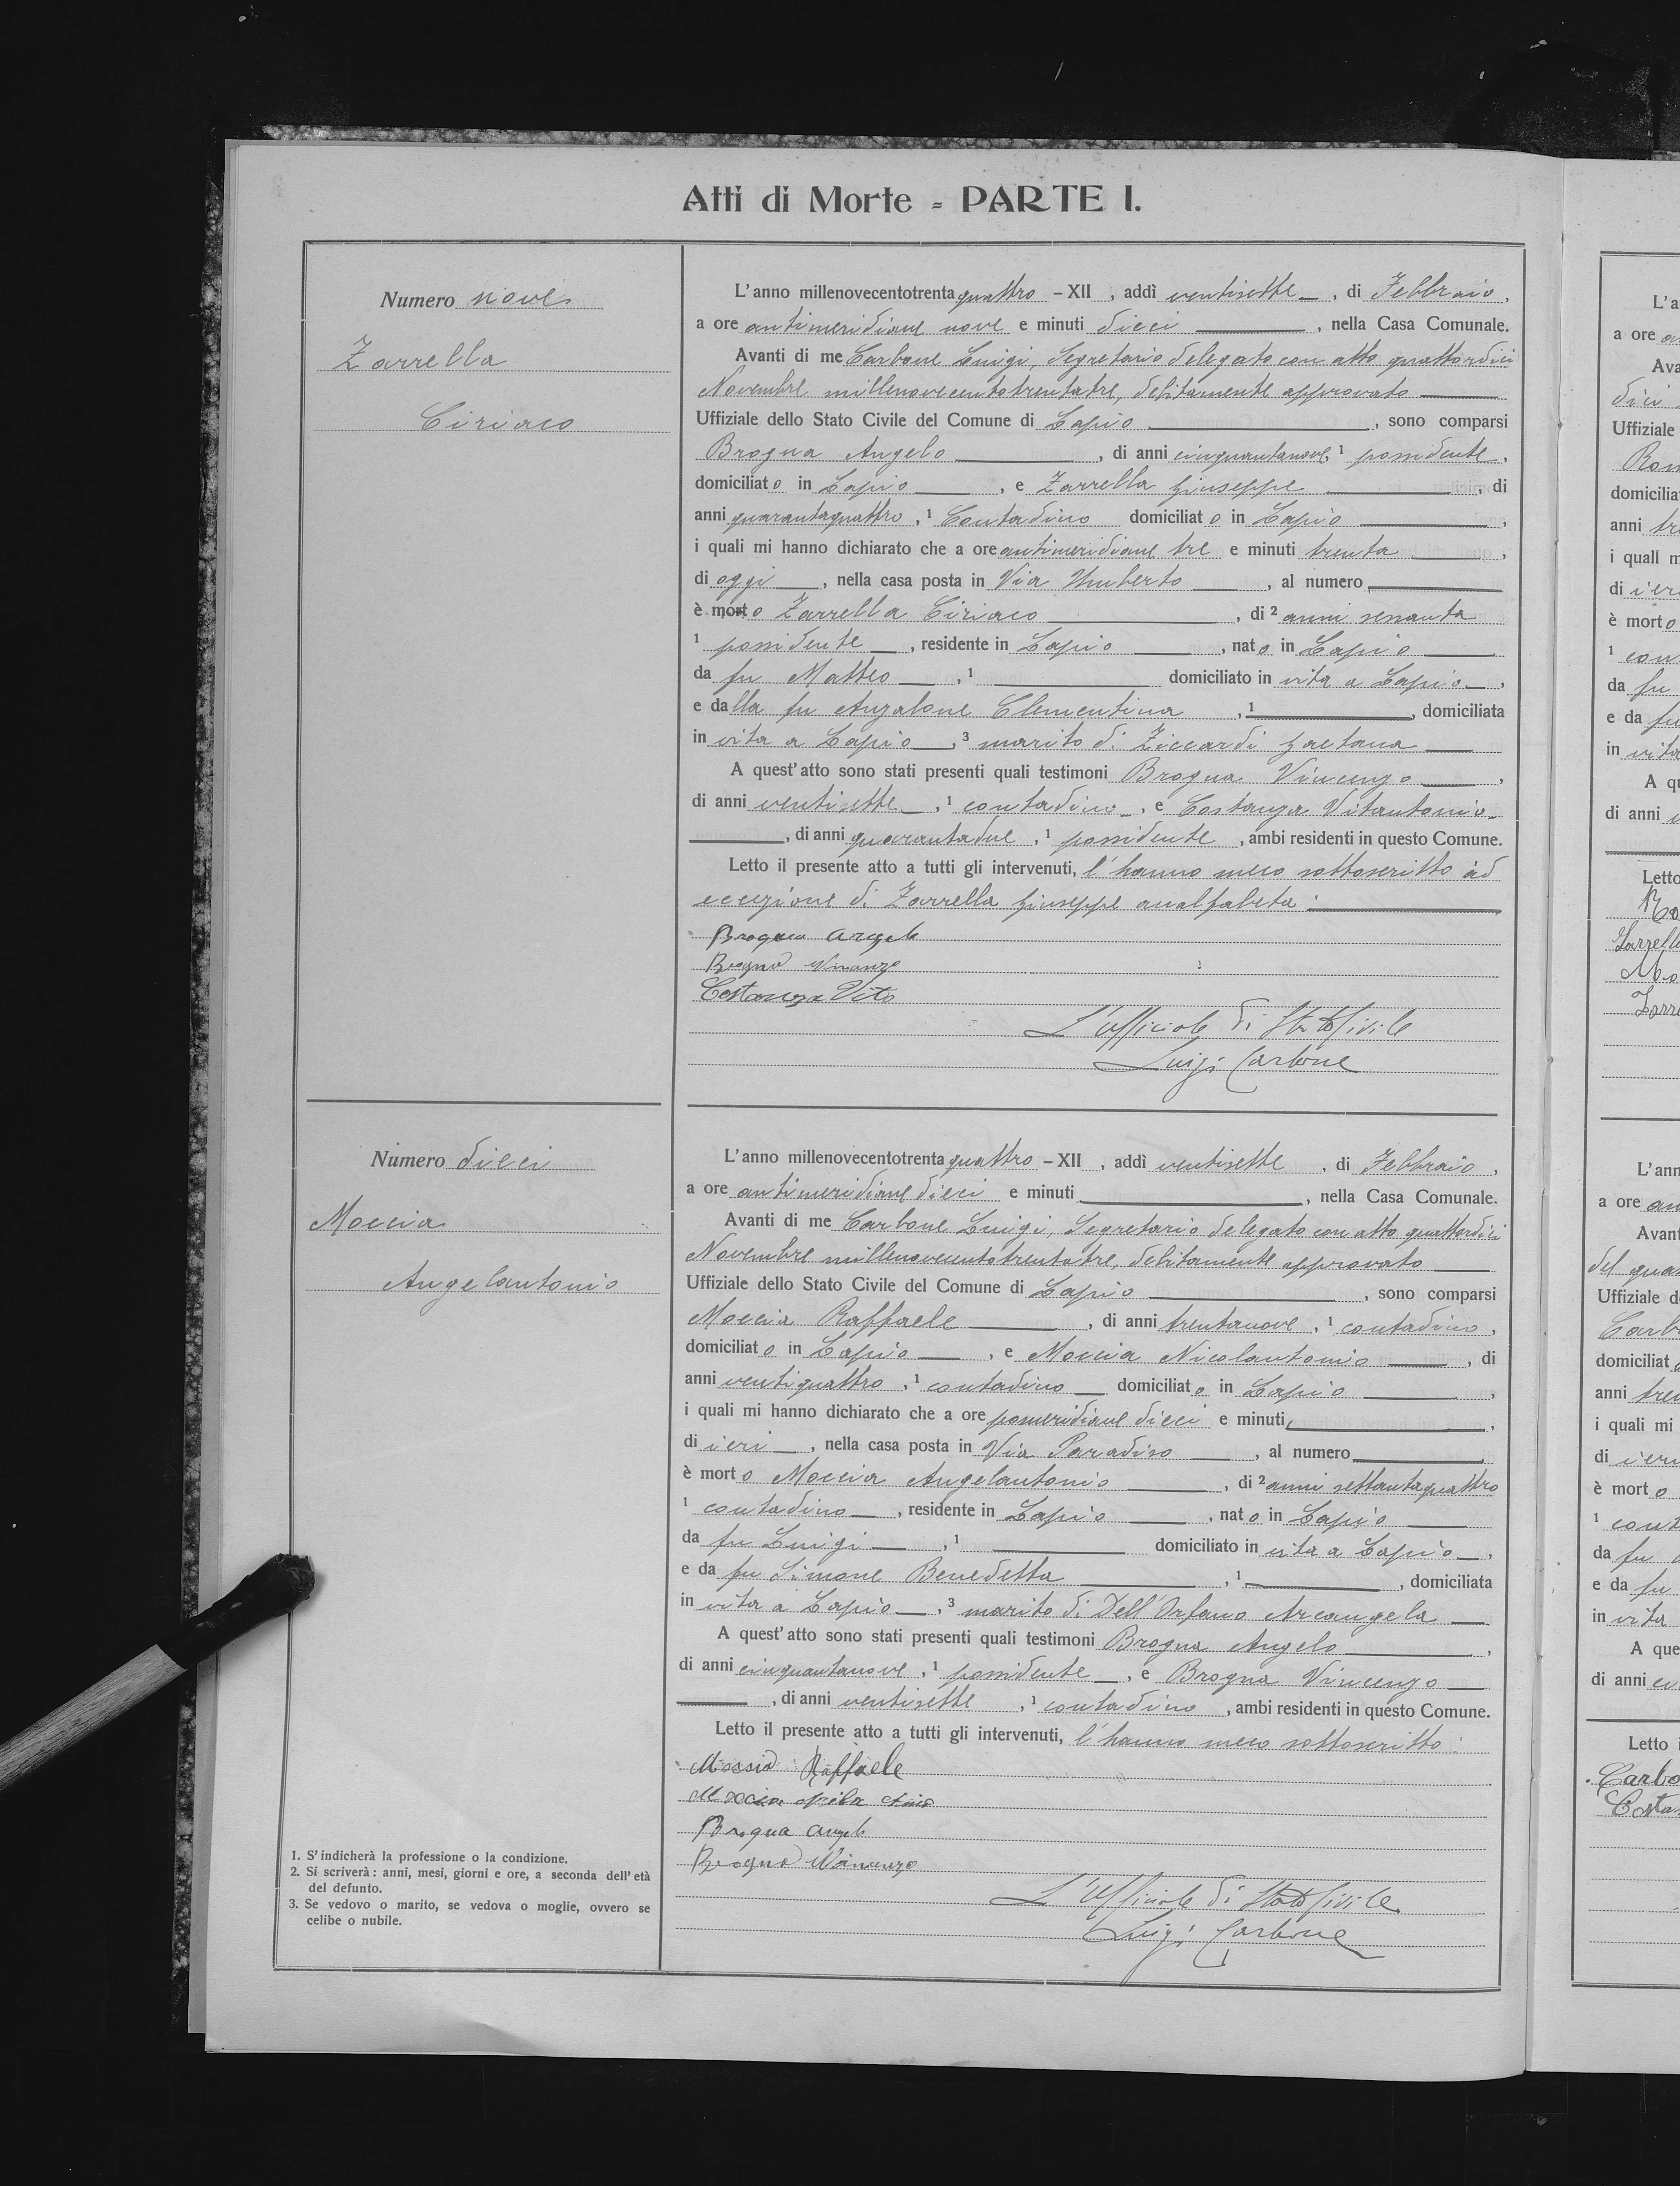 Atti di Morte - PARTE I.
Numero nove
Zarrella
Ciriaco
L'anno millenovecentotrentaquattro - XII, addì ventisette, di Febbraio,
a ore antimeridiane nove e minuti dieci, nella Casa Comunale.
Avanti di me Carbone Luigi, Segretario delegato con atto quattordici
Novembre millenovecentotrentatre, debitamente approvato
Uffiziale dello Stato Civile del Comune di Lapio, sono comparsi
Brogna Angelo, di anni cinquantanove, 1 possidente,
domiciliato in Lapio, e Zarrella Giuseppe, di
anni quarantaquattro, 1 Contadino domiciliato in Lapio,
i quali mi hanno dichiarato che a ore antimeridiane tre e minuti trenta,
di oggi, nella casa posta in Via Umberto, al numero
è morto Zarrella Ciriaco, di 2 anni sessanta
1 possidente, residente in Lapio, nato in Lapio
da fu Matteo, 1 domiciliato in vita a Lapio,
e dalla fu Anzalone Clementina, 1, domiciliata
in vita a Lapio, 3 marito di Ziccardi Gaetana
A quest'atto sono stati presenti quali testimoni Brogna Vincenzo,
di anni ventisette, 1 contadino, e Costanza Vitantonio
, di anni quarantadue, 1 possidente, ambi residenti in questo Comune.
Letto il presente atto a tutti gli intervenuti, l'hanno meco sottoscritto ad
eccezione di Zarrella Giuseppe analfabeta.
Brogna Angelo
Brogna Vincenzo
Costanza Vito
L'Ufficiale di Stato Civile
Luigi Carbone
Numero dieci
Moccia
Angelantonio
L'anno millenovecentotrentaquattro - XII, addì ventisette, di Febbraio,
a ore antimeridiane dieci e minuti, nella Casa Comunale.
Avanti di me Carbone Luigi, Segretario delegato con atto quattordici
Novembre millenovecentotrentatre, debitamente approvato
Uffiziale dello Stato Civile del Comune di Lapio, sono comparsi
Moccia Raffaele, di anni trentanove, 1 contadino,
domiciliato in Lapio, e Moccia Nicolantonio, di
anni ventiquattro, 1 contadino domiciliato in Lapio,
i quali mi hanno dichiarato che a ore pomeridiane dieci e minuti,
di ieri, nella casa posta in Via Paradiso, al numero
è morto Moccia Angelantonio, di 2 anni settantaquattro
1 contadino, residente in Lapio, nato in Lapio
da fu Luigi, 1 domiciliato in vita a Lapio,
e da fu Simone Benedetta, 1, domiciliata
in vita a Lapio, 3 marito di Dell'Orfano Arcangela
A quest'atto sono stati presenti quali testimoni Brogna Angelo,
di anni cinquantanove, 1 possidente, e Brogna Vincenzo
, di anni ventisette, 1 contadino, ambi residenti in questo Comune.
Letto il presente atto a tutti gli intervenuti, l'hanno meco sottoscritto:
Moccia Raffaele
Moccia
Brogna Angelo
Brogna Vincenzo
L'Ufficiale di Stato Civile
Luigi Carbone
1. S'indicherà la professione o la condizione.
2. Si scriverà: anni, mesi, giorni e ore, a seconda dell'età
del defunto.
3. Se vedovo o marito, se vedova o moglie, ovvero se
celibe o nubile.
L'a
a ore
Ava
Uffiziale
domicilia
anni
i quali m
di ieri
è morto
1 con
da fu
e da fu
in vita
A qu
di anni
Letto
Zarrell
Mo
Zarr
L'ann
a ore an
Avant
del qua
Uffiziale d
Carb
domiciliat
anni tren
i quali mi
di ieri
è morto
1 cont
da fu
e da fu
in vita
A que
di anni
Letto i
Carbo
Costa